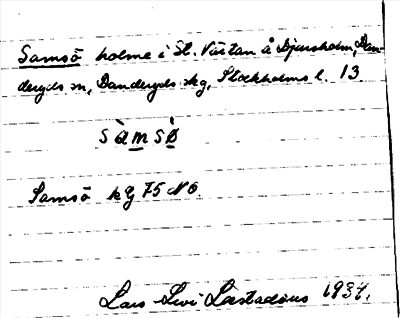 Samsö holme i St. Värtan å Djursholm, Dan-
deryds sn, Danderyds skg, Stockholms l. 13
sàmsö̀
Samsö kg 75 NO.
Lars Levi Læstadius 1934.